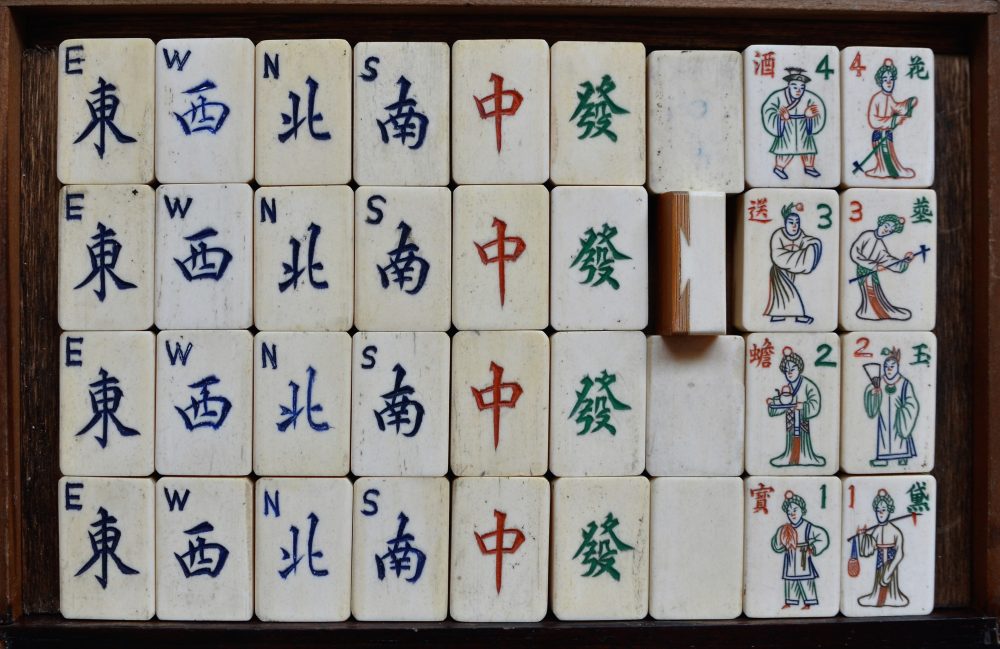 E 東 W 西 N 北 S 南 中 發 酒 4 4 花
E 東 W 西 N 北 S 南 中 發 送 3 3 塟
E 東 W 西 N 北 S 南 中 發 蟾 2 2 玉
E 東 W 西 N 北 S 南 中 發 寶 1 1 黛